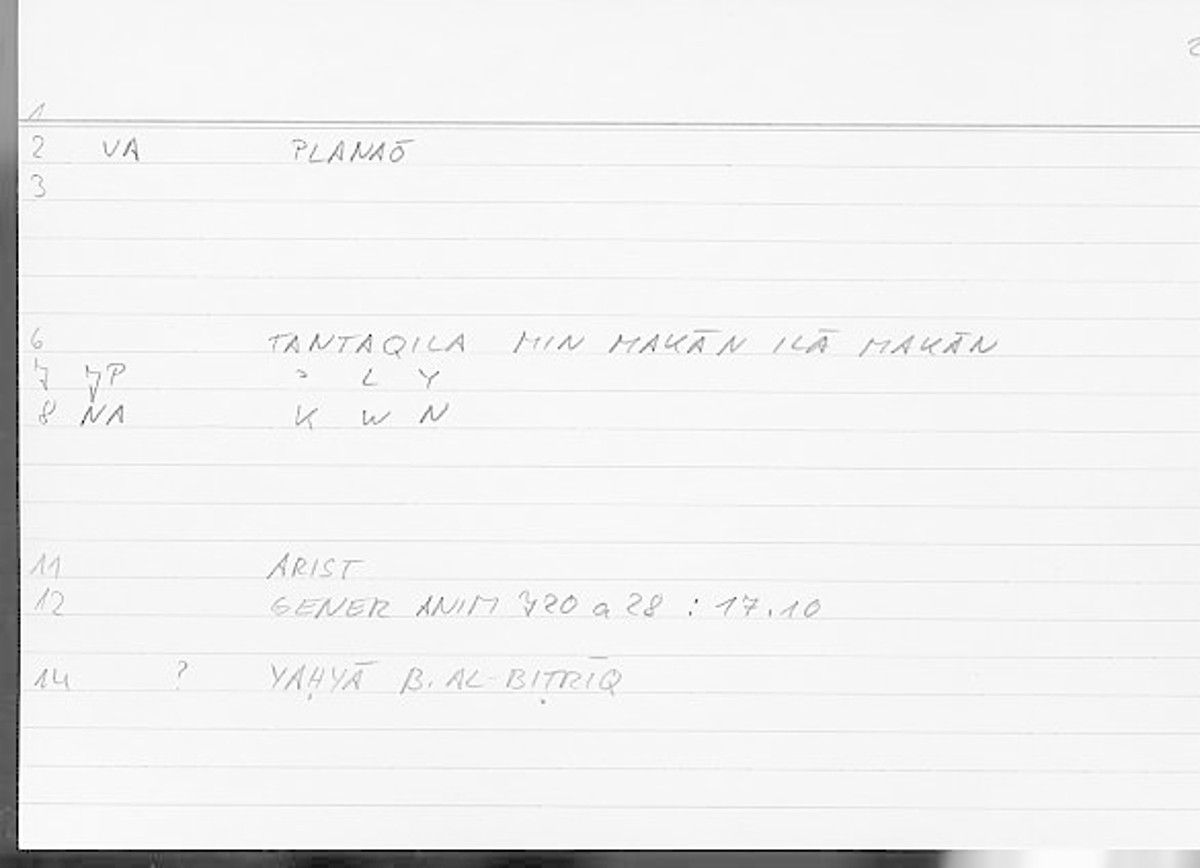 1
2 VA PLANAŌ
3
6 TANTAQILA MIN MAKĀN ILĀ MAKĀN
7 JP ʾ L Y
8 NA K W N
11 ARIST
12 GENER ANIM 720 a 28 : 17.10
14 ? YAḤYĀ B. AL-BIṬRĪQ